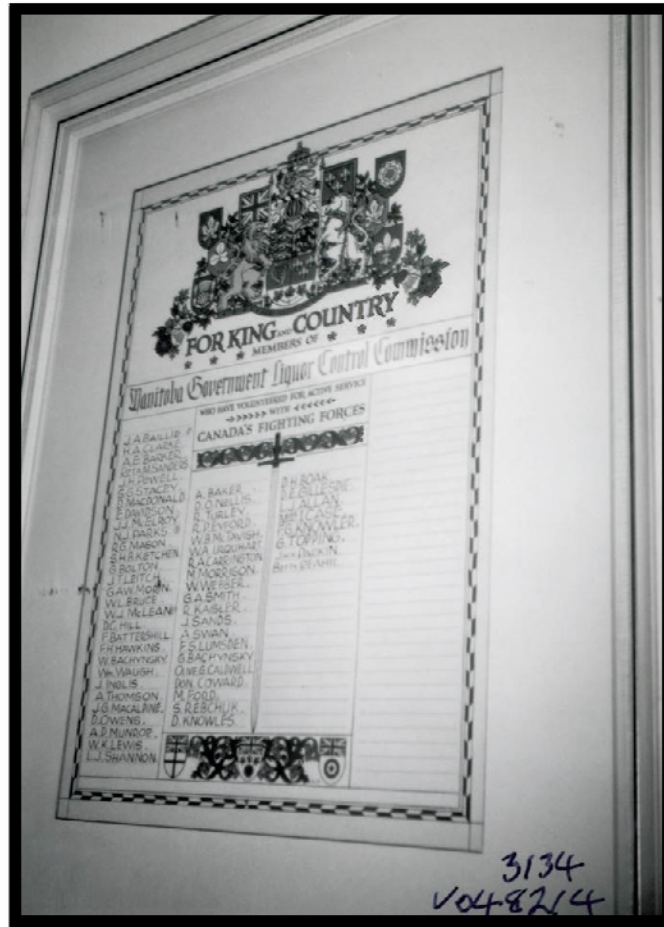 FOR KING AND COUNTRY
MEMBERS OF
Manitoba Government Liquor Control Commission
WHO HAVE VOLUNTEERED FOR ACTIVE SERVICE
WITH
CANADA'S FIGHTING FORCES
J.A.BAILLIE
H.A.CLARKE
A.E.BARKER
RETA M.SANDERS
J.H.POWELL
G.G.STACEY
B.MACDONALD
E.DAVIDSON
J.J.McELROY
N.J.PARKS
R.G.MASON
S.H.B.KETCHEN
G.BOLTON
J.T.LEITCH
G.A.W.MORIN
W.L.BRUCE
W.J.McLEAN
D.G.HILL
F.BATTERSHILL
F.H.HAWKINS
W.BACHYNSKY
WM.WAUGH
J.INGLIS
A.THOMSON
J.G.MACALPINE
D.OWENS
A.D.MUNROE
W.K.LEWIS
L.J.SHANNON
A.BAKER
D.O.NELLIS
R.TURLEY
R.DEYFORD
W.B.McTAVISH
W.A.URQUHART
R.A.CARRINGTON
M.MORRISON
W.WEBBER
G.A.SMITH
R.KABLER
J.SANDS
A.SWAN
F.S.LUMSDEN
G.BACHYNSKY
OLIVE G.CALDWELL
DON.COWARD
M.FORD
S.REBCHUK
D.KNOWLES
D.H.BOAK
D.E.GILLESPIE
L.J.ALLAN
P.G.KNOWLER
G.TOPPING
3134
V048214